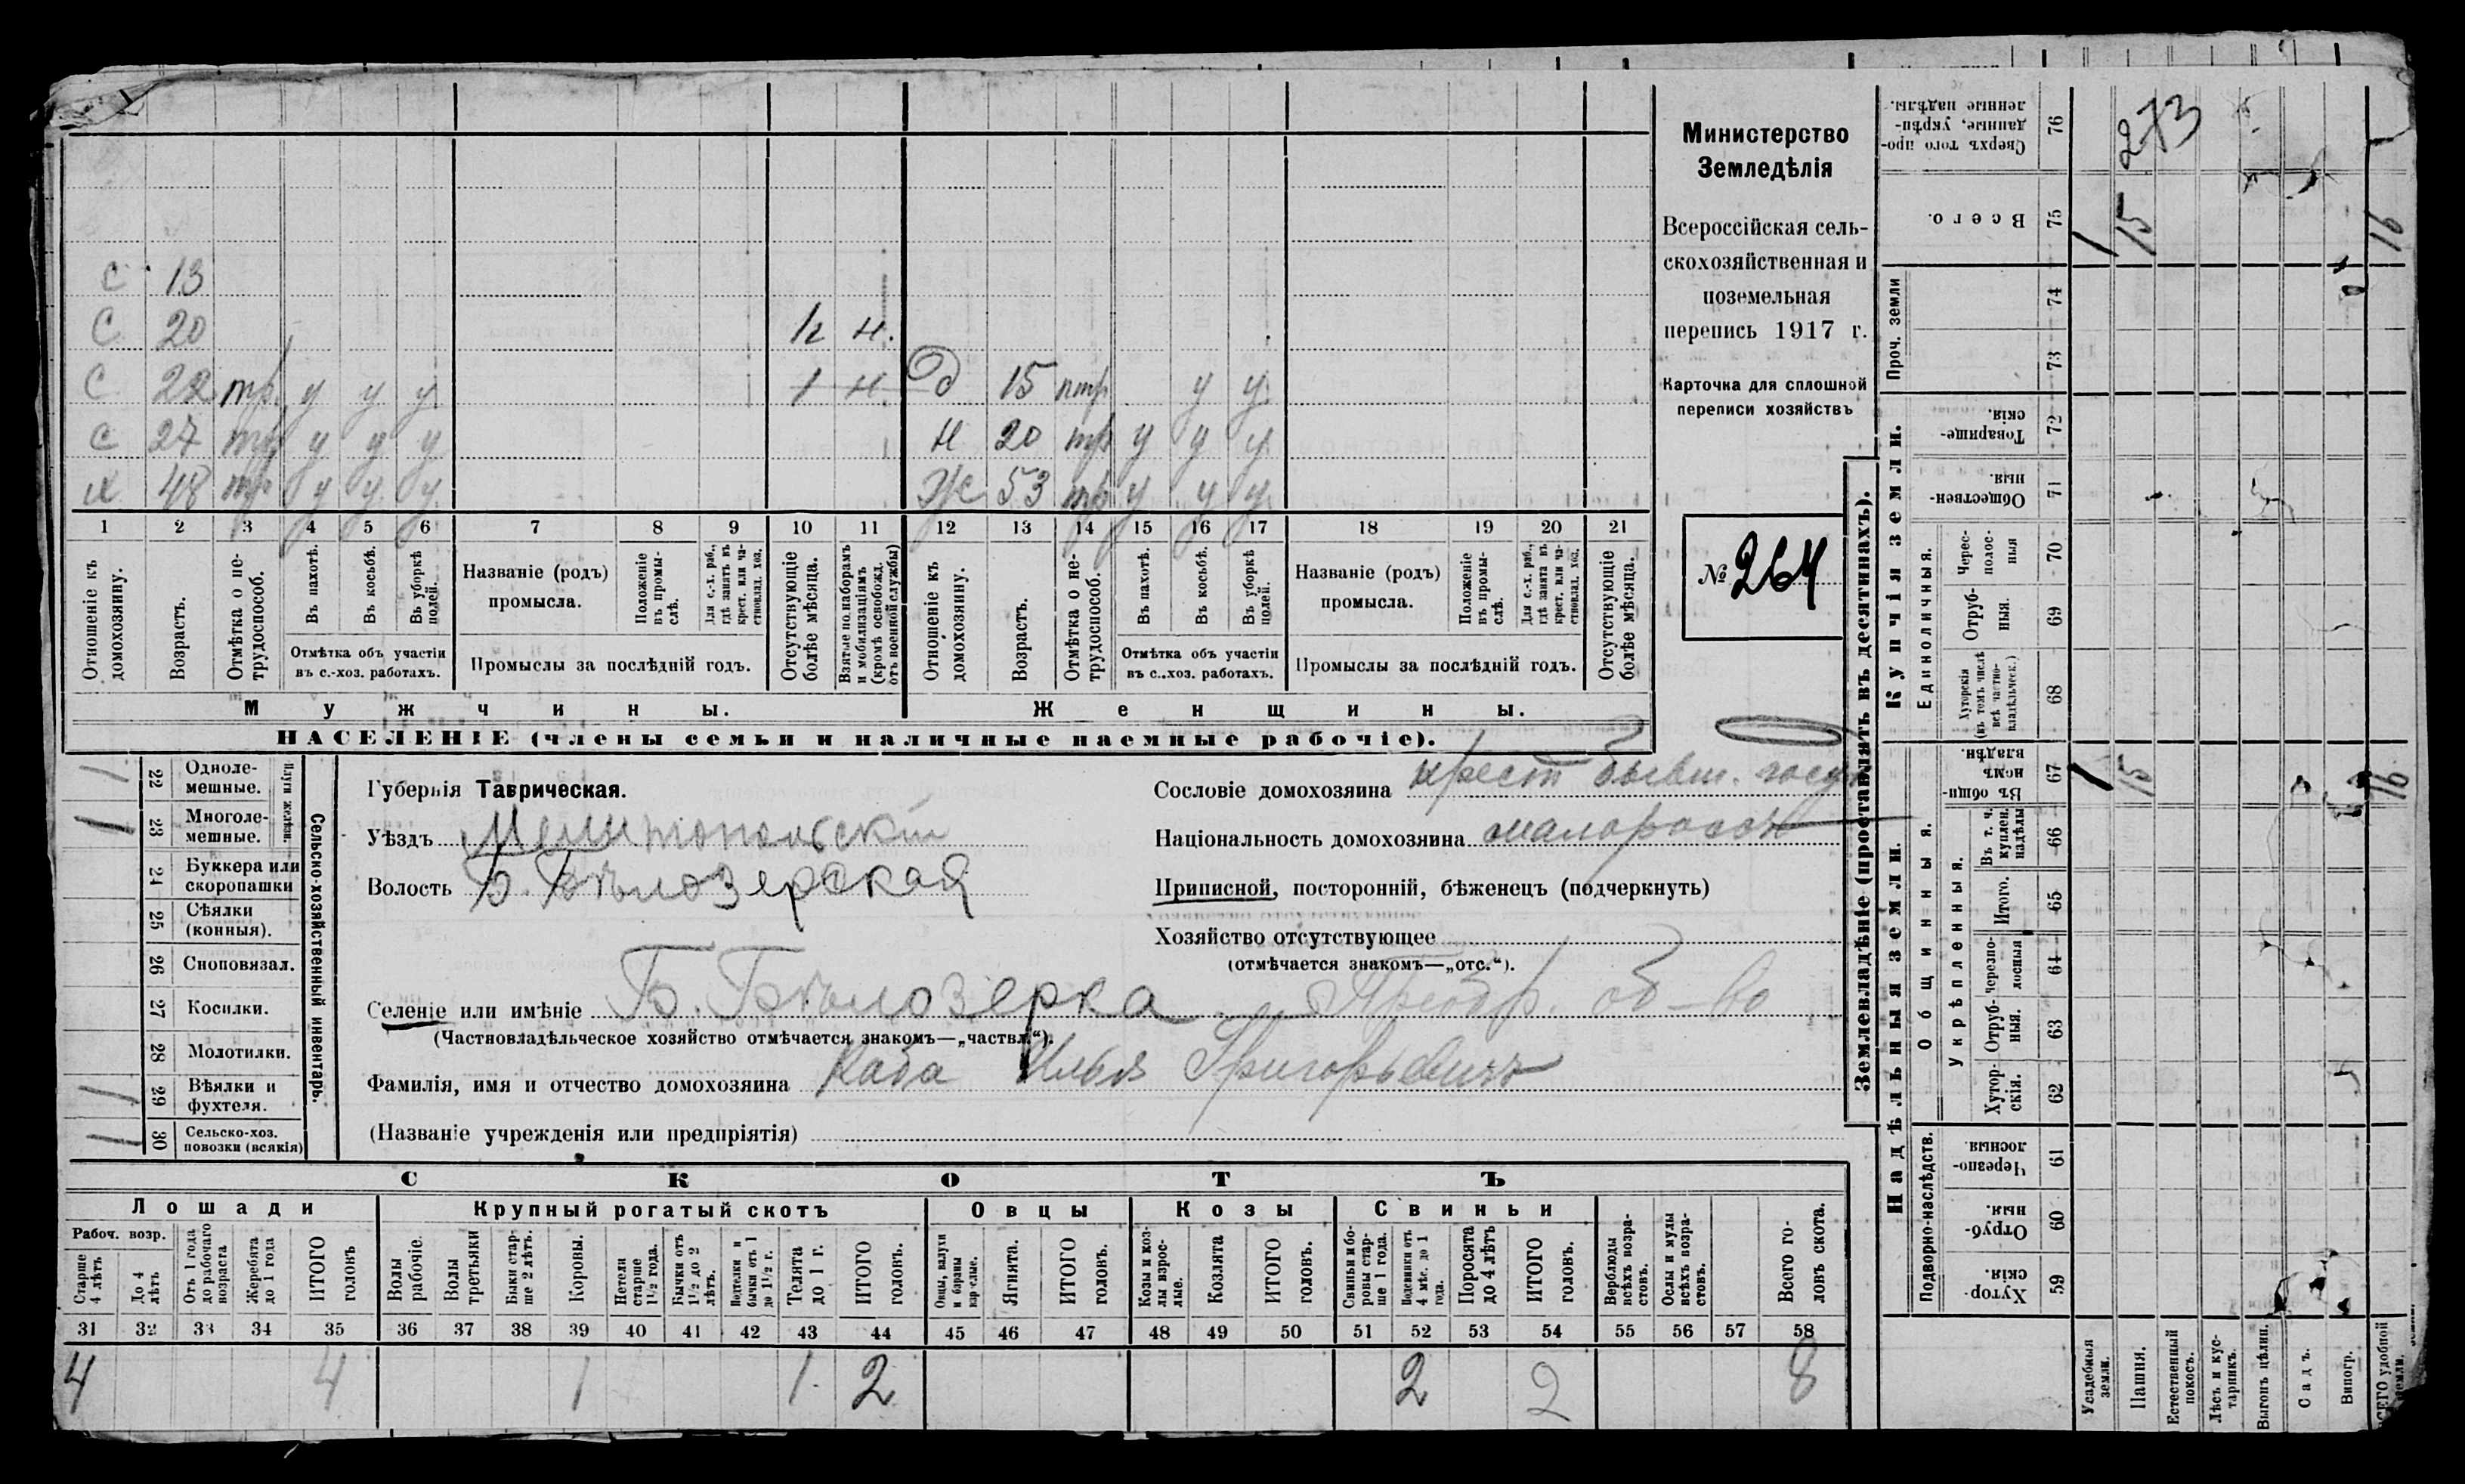 С 13
С 20 1/2 н.
С 22 тр. у у у 1 н. Д 15 птр у у
С 27 тр у у у Н 20 тр у у у
х 48 тр у у у Ж 53 тр у у у
1 2 3 4 5 6 7 8 9 10 11 12 13 14 15 16 17 18 19 20 21
Отношеніе къ домохозяину.
Возрастъ.
Отмѣтка о не-трудоспособ.
Въ пахотѣ.
Въ косьбѣ.
Въ уборкѣ полей.
Отмѣтка объ участіи
въ с.-хоз. работахъ.
Названіе (родъ)
промысла.
Положеніе въ промы-слѣ.
Для с.-х. раб., гдѣ занятъ въ крест. или ча-стновлад. хоз.
Промыслы за послѣдній годъ.
Отсутствующіе болѣе мѣсяца.
Взятые по наборамъ и мобилизаціямъ (кромѣ освобожд. отъ военной службы)
Отношеніе къ домохозяину.
Возрастъ.
Отмѣтка о не-трудоспособ.
Въ пахотѣ.
Въ косьбѣ.
Въ уборкѣ полей.
Отмѣтка объ участіи
въ с.-хоз. работахъ.
Названіе (родъ)
промысла.
Положеніе въ промы-слѣ.
Для с.-х. раб., гдѣ занята въ крест. или ча-стновлад. хоз.
Промыслы за послѣдній годъ.
Отсутствующіе болѣе мѣсяца.
Мужчины.
Женщины.
НАСЕЛЕНІЕ (члены семьи и наличные наемные рабочіе).
Министерство
Земледѣлія
Всероссійская сель-
скохозяйственная и
поземельная
перепись 1917 г.
Карточка для сплошной
переписи хозяйствъ
№ 264
Плуги желѣзн.
22 Одноле-мешные. 1
23 Многоле-мешные. 1
24 Буккера или скоропашки
25 Сѣялки (конныя).
26 Сноповязал.
27 Косилки.
28 Молотилки.
29 Вѣялки и фухтеля. 1
30 Сельско-хоз. повозки (всякія) 1
Сельско-хозяйственный инвентарь.
Губернія Таврическая.
Уѣздъ Мелитопольскій
Волость Б. Бѣлозерская
Селеніе или имѣніе Б. Бѣлозерка об-во
(Частновладѣльческое хозяйство отмѣчается знакомъ—„частвл.“).
Фамилія, имя и отчество домохозяина Каба Илья Григорьевичъ
(Названіе учрежденія или предпріятія)
Сословіе домохозяина крест бывш. госуд
Національность домохозяина малороссъ
Приписной, посторонній, бѣженецъ (подчеркнуть)
Хозяйство отсутствующее
(отмѣчается знакомъ—„отс.“).
СКОТЪ
Лошади
Рабоч. возр.
Старше 4 лѣтъ
До 4 лѣтъ
Отъ 1 года до рабочаго возраста
Жеребята до 1 года
ИТОГО головъ
Крупный рогатый скотъ
Волы рабочіе.
Волы третьяки
Быки стар-ше 2 лѣтъ.
Коровы.
Нетели старше 1½ года.
Бычки отъ 1½ до 2 лѣтъ.
Подтелки и бычки отъ 1 до 1½ г.
Телята до 1 г.
ИТОГО головъ.
Овцы
Овцы, валухи и бараны взрослые.
Ягнята.
ИТОГО головъ.
Козы
Козы и коз-лы взрос-лые.
Козлята
ИТОГО головъ.
Свиньи
Свиньи и бо-ровы стар-ше 1 года.
Подсвинки отъ 4 мѣс. до 1 года.
Поросята до 4 лѣтъ
ИТОГО головъ.
Верблюды всѣхъ возра-стовъ.
Ослы и мулы всѣхъ возра-стовъ.
Всего го-ловъ скота.
31 32 33 34 35 36 37 38 39 40 41 42 43 44 45 46 47 48 49 50 51 52 53 54 55 56 57 58
4 4 1 1 2 2 2 8
Землевладѣніе (проставлять въ десятинахъ).
Надѣльныя земли.
Подворно-наслѣдств.
Хутор-скія. 59
Отруб-ныя. 60
Черезпо-лосныя 61
Общинныя.
Укрѣпленныя.
Хутор-скія. 62
Отруб-ныя. 63
Черезпо-лосныя 64
Итого. 65
Въ т. ч. куплен. надѣлы 66
Въ общи-номъ владѣн. 67 1 15 16
Купчія земли.
Единоличныя.
Хуторскія (въ томъ числѣ всѣ частно-владѣльческ.) 68
Отруб-ныя. 69
Черес-полос-ныя 70
Обществен-ныя. 71
Товарище-скія. 72
Проч. земли
73
74
Всего. 75 1 15 16
Сверхъ того про-данные, укрѣп-ленные надѣлы. 76
273
Усадебныя земли.
Пашня.
Естественный покосъ.
Лѣсъ и кус-тарникъ.
Выгонъ цѣлин.
Садъ.
Виногр.
ВСЕГО удобной земли.